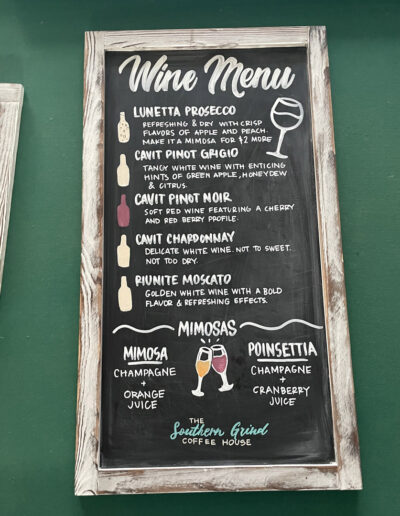 Wine Menu
LUNETTA PROSECCO
REFRESHING & DRY WITH CRISP
FLAVORS OF APPLE AND PEACH.
MAKE IT A MIMOSA FOR $2 MORE
CAVIT PINOT GRIGIO
TANGY WHITE WINE WITH ENTICING
HINTS OF GREEN APPLE, HONEYDEW
& CITRUS.
CAVIT PINOT NOIR
SOFT RED WINE FEATURING A CHERRY
AND RED BERRY PROFILE.
CAVIT CHARDONNAY
DELICATE WHITE WINE. NOT TO SWEET.
NOT TOO DRY.
RIUNITE MOSCATO
GOLDEN WHITE WINE WITH A BOLD
FLAVOR & REFRESHING EFFECTS.
MIMOSAS
MIMOSA
CHAMPAGNE
+
ORANGE
JUICE
POINSETTIA
CHAMPAGNE
+
CRANBERRY
JUICE
THE
Southern Grind
COFFEE HOUSE